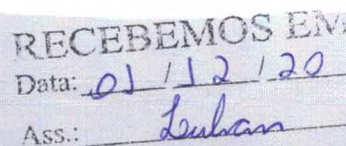 RECEBEMOS EM
Data: 01/12/20
Ass.: